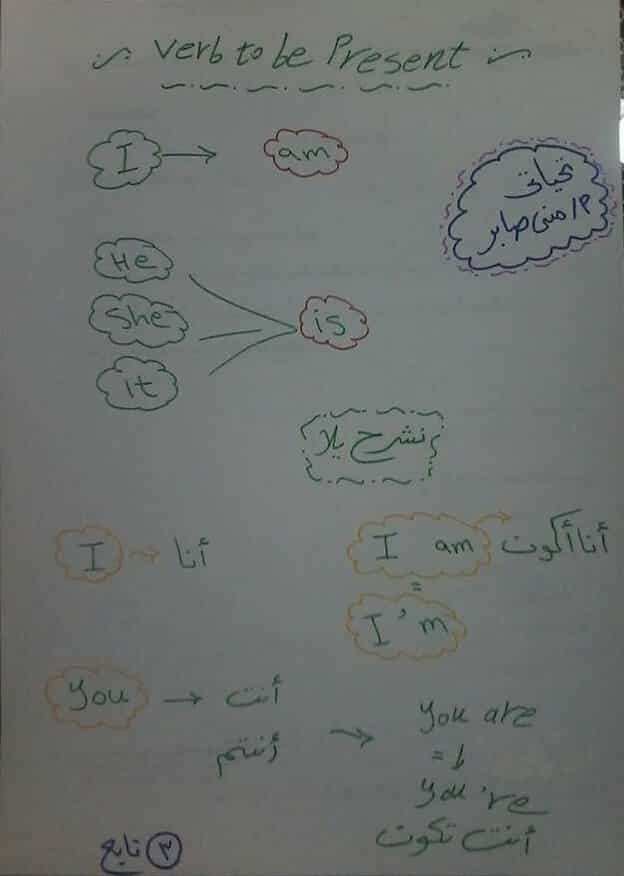 verb to be Present
I → am
تحياتى
م/ منى صابر
He
She
it
is
نشرح يلا
I → أنا
I am → أنا أكون
=
I'm
you → أنت
أنتم → you are
=
you're
أنت تكون
٣ تابع